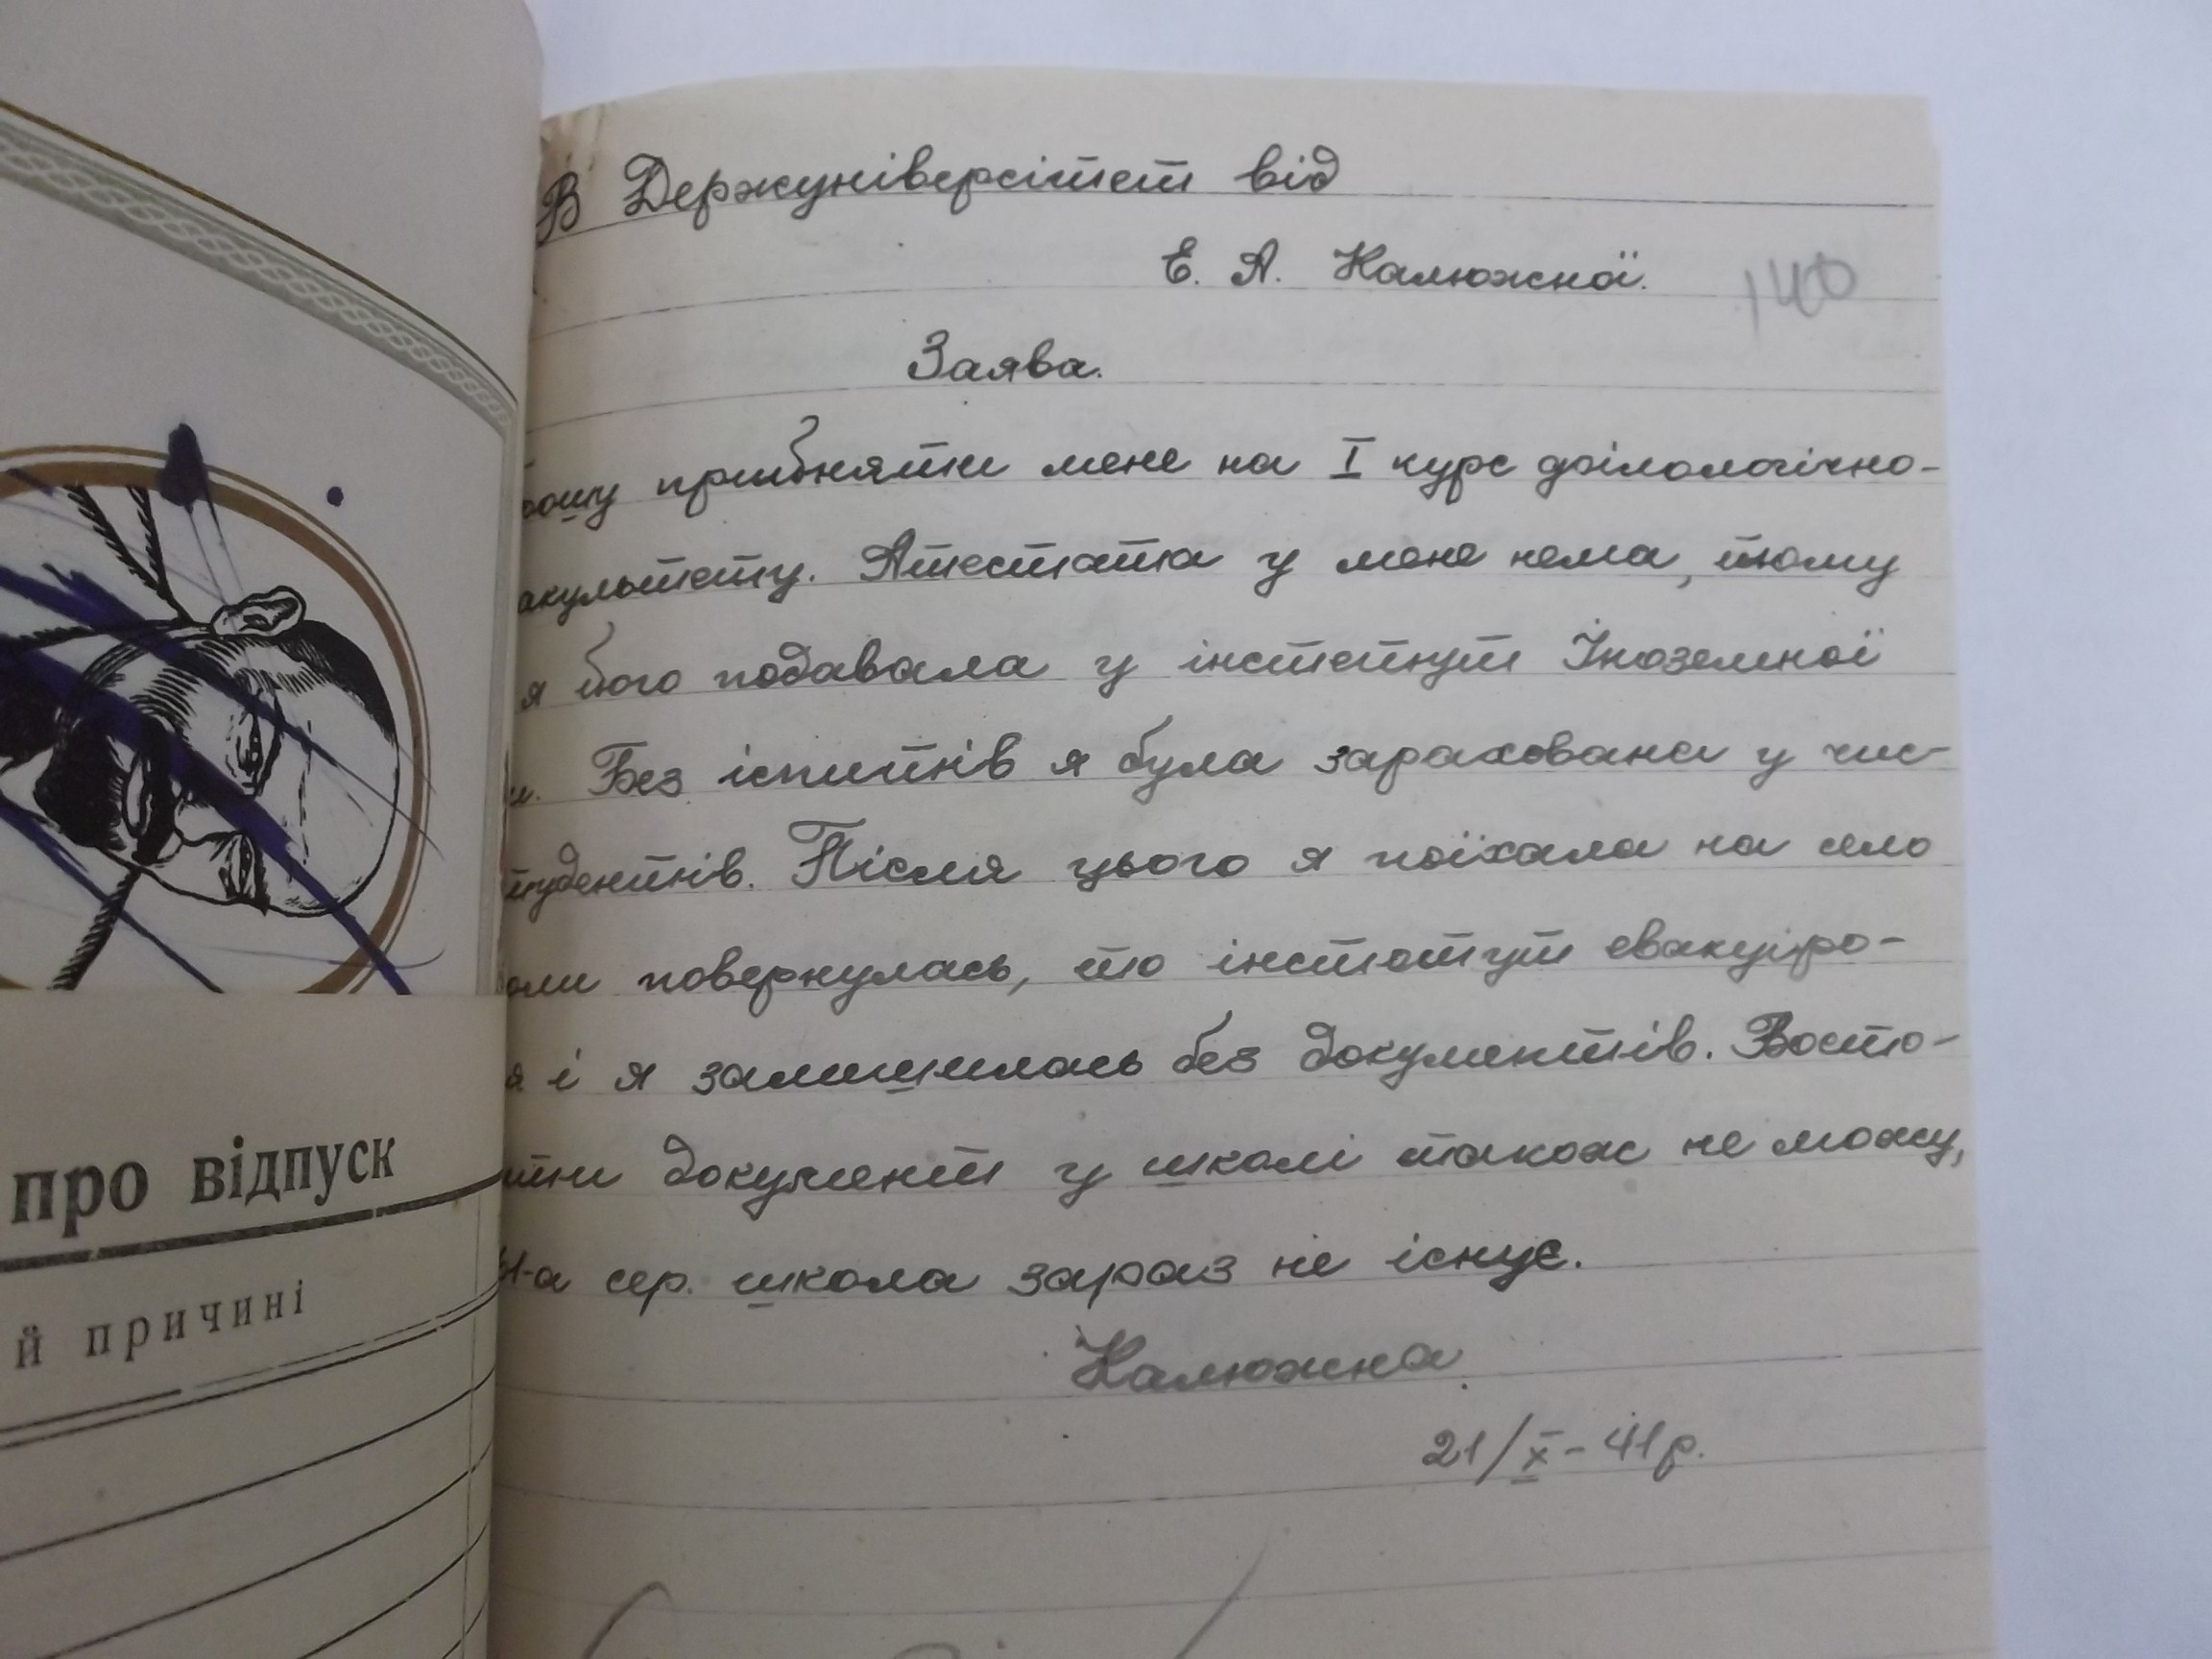 В Держуніверсітет від
Е. А. Калюжної.
140
Заява.
рошу прийняти мене на I курс філологічно-
акультету. Атестата у мене нема, тому
я його подавала у інстетнут Іноземної
и. Без іспитнів я була зарахована у чис-
тудентнів. Після цього я поїхала на село
коли повернулась, то інстетут евакуіро-
я і я залишилась без документів. Восто-
ити документ у школі також не можу,
41-а сер. школа зараз не існує.
Калюжна.
21/X - 41 р.
про відпуск
й причині